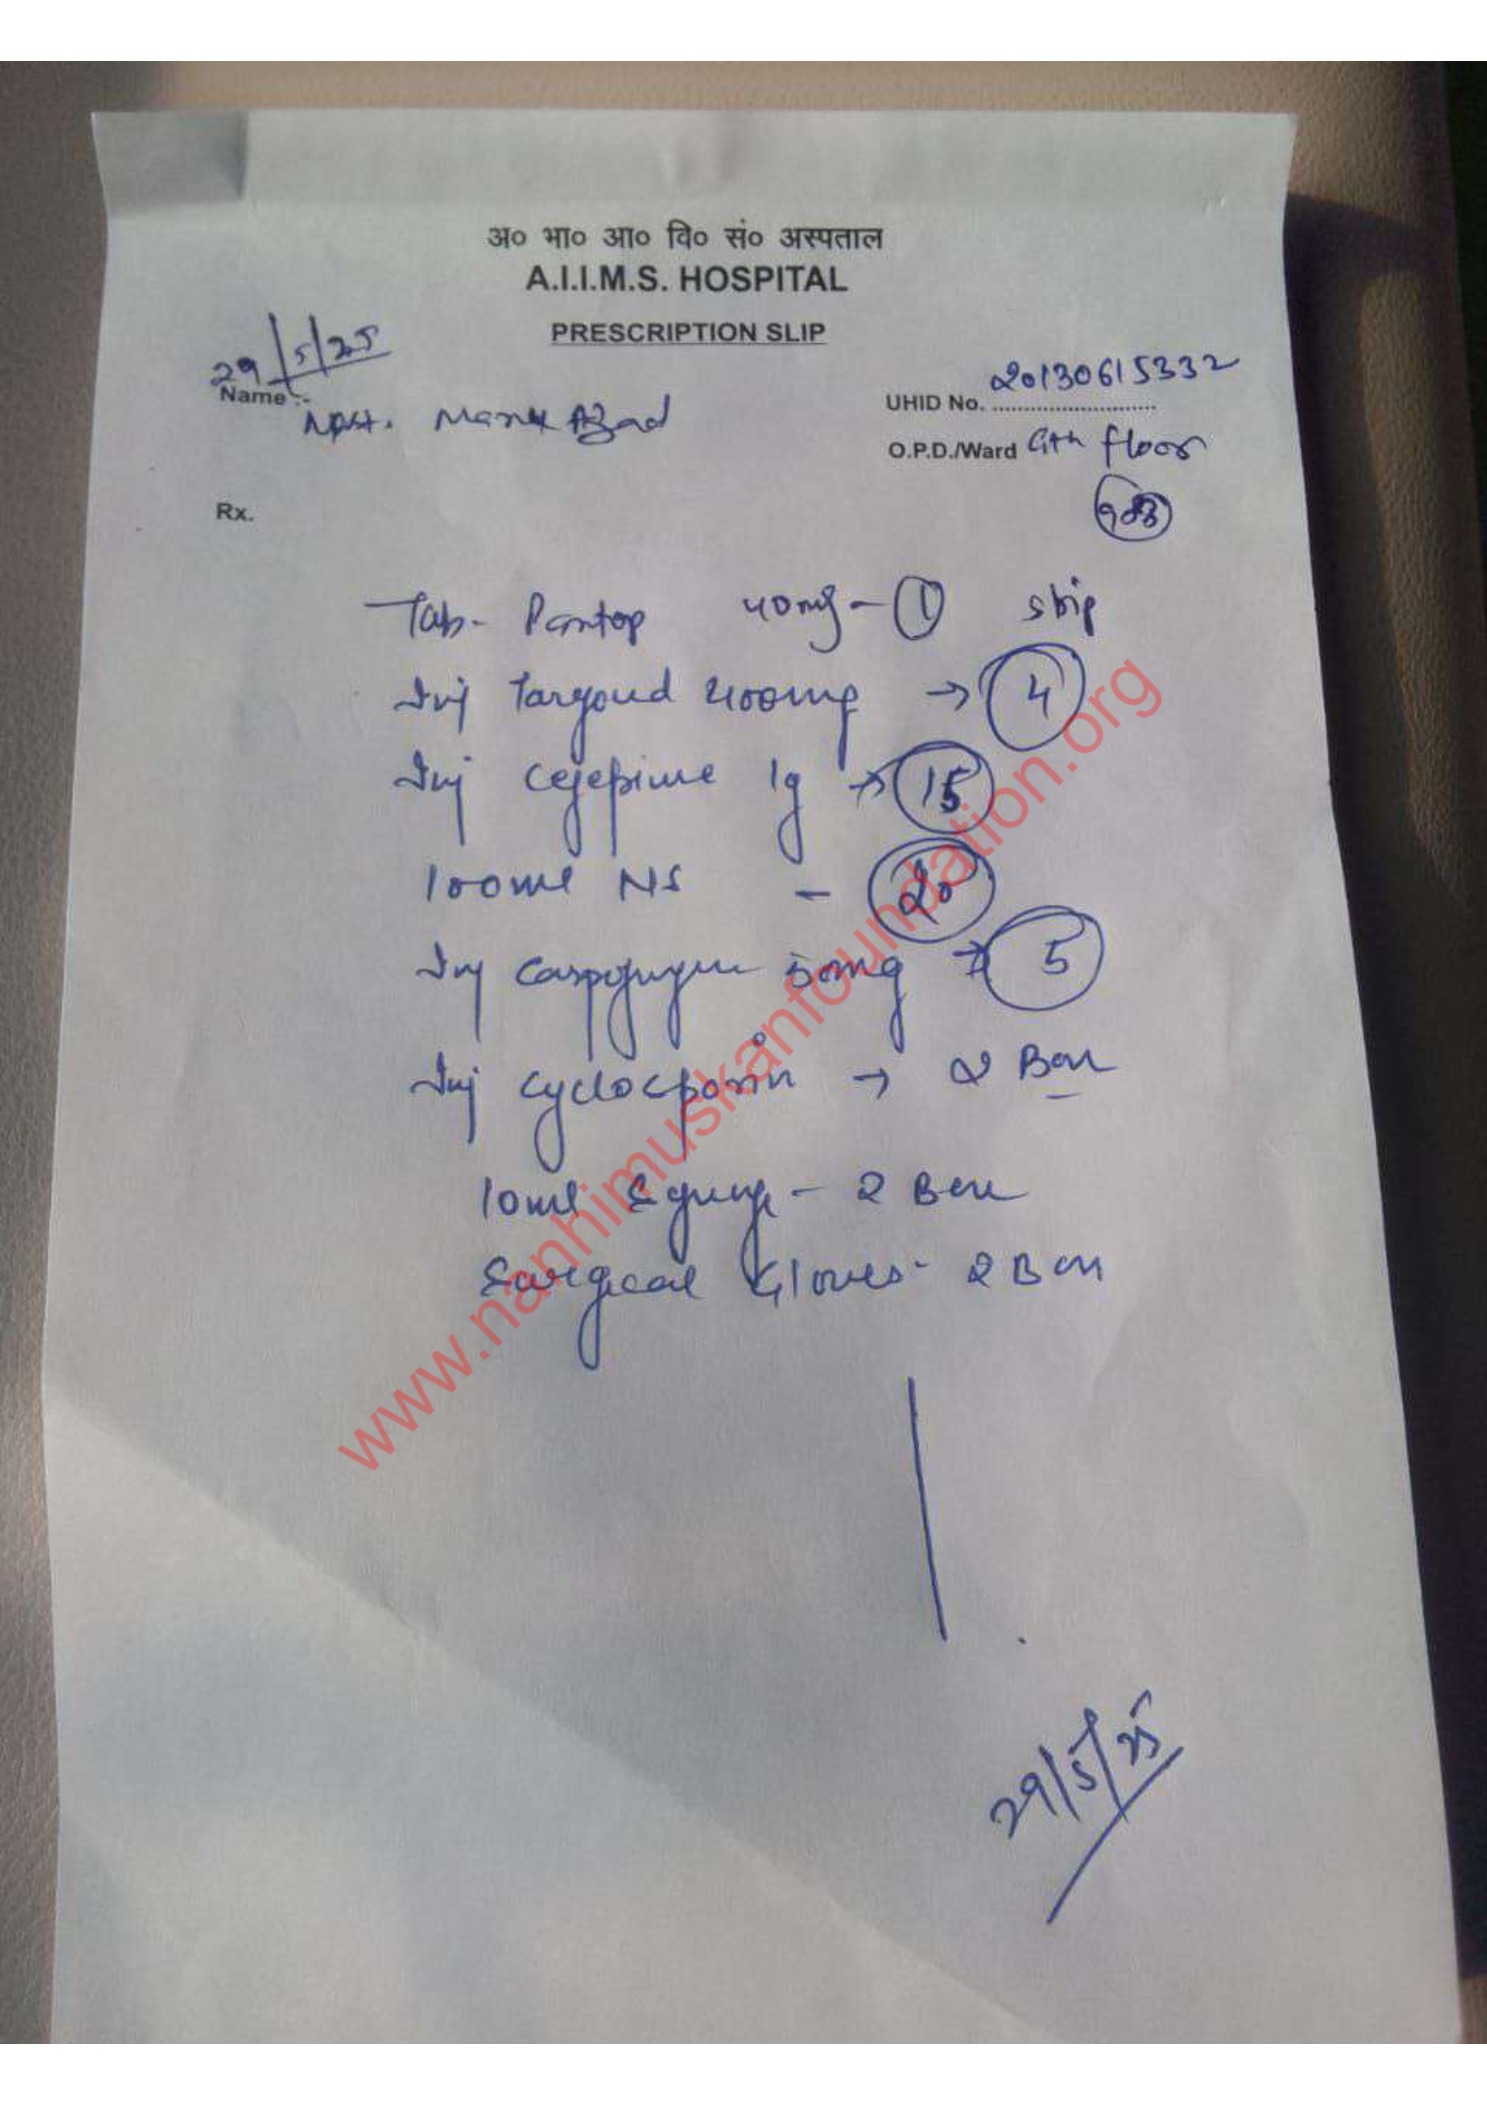 अ० भा० आ० वि० सं० अस्पताल
A.I.I.M.S. HOSPITAL
PRESCRIPTION SLIP
29/5/25
Name :- Azad
UHID No. 20130615332
O.P.D./Ward 9th floor
Rx.
Tab- Pantop 40mg - 1 strip
Inj Targocid 400mg → 4
Inj cefepime 1g → 15
100ml NS - 20
Inj caspofungin 50mg → 5
Inj cyclocsporin → 2 Box
10ml Syringe - 2 Box
Surgical Gloves - 2 Box
29/5/25
www.nanhimuskanfoundation.org